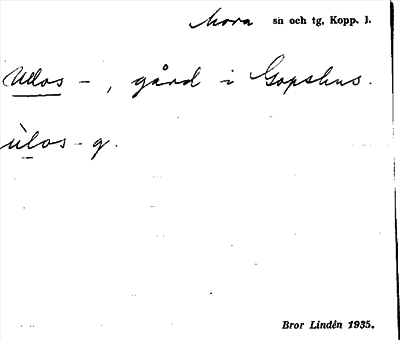 Mora sn och tg, Kopp. l.
Ullos - , gård i Gopshus.
ùlos - g.
Bror Lindén 1935.